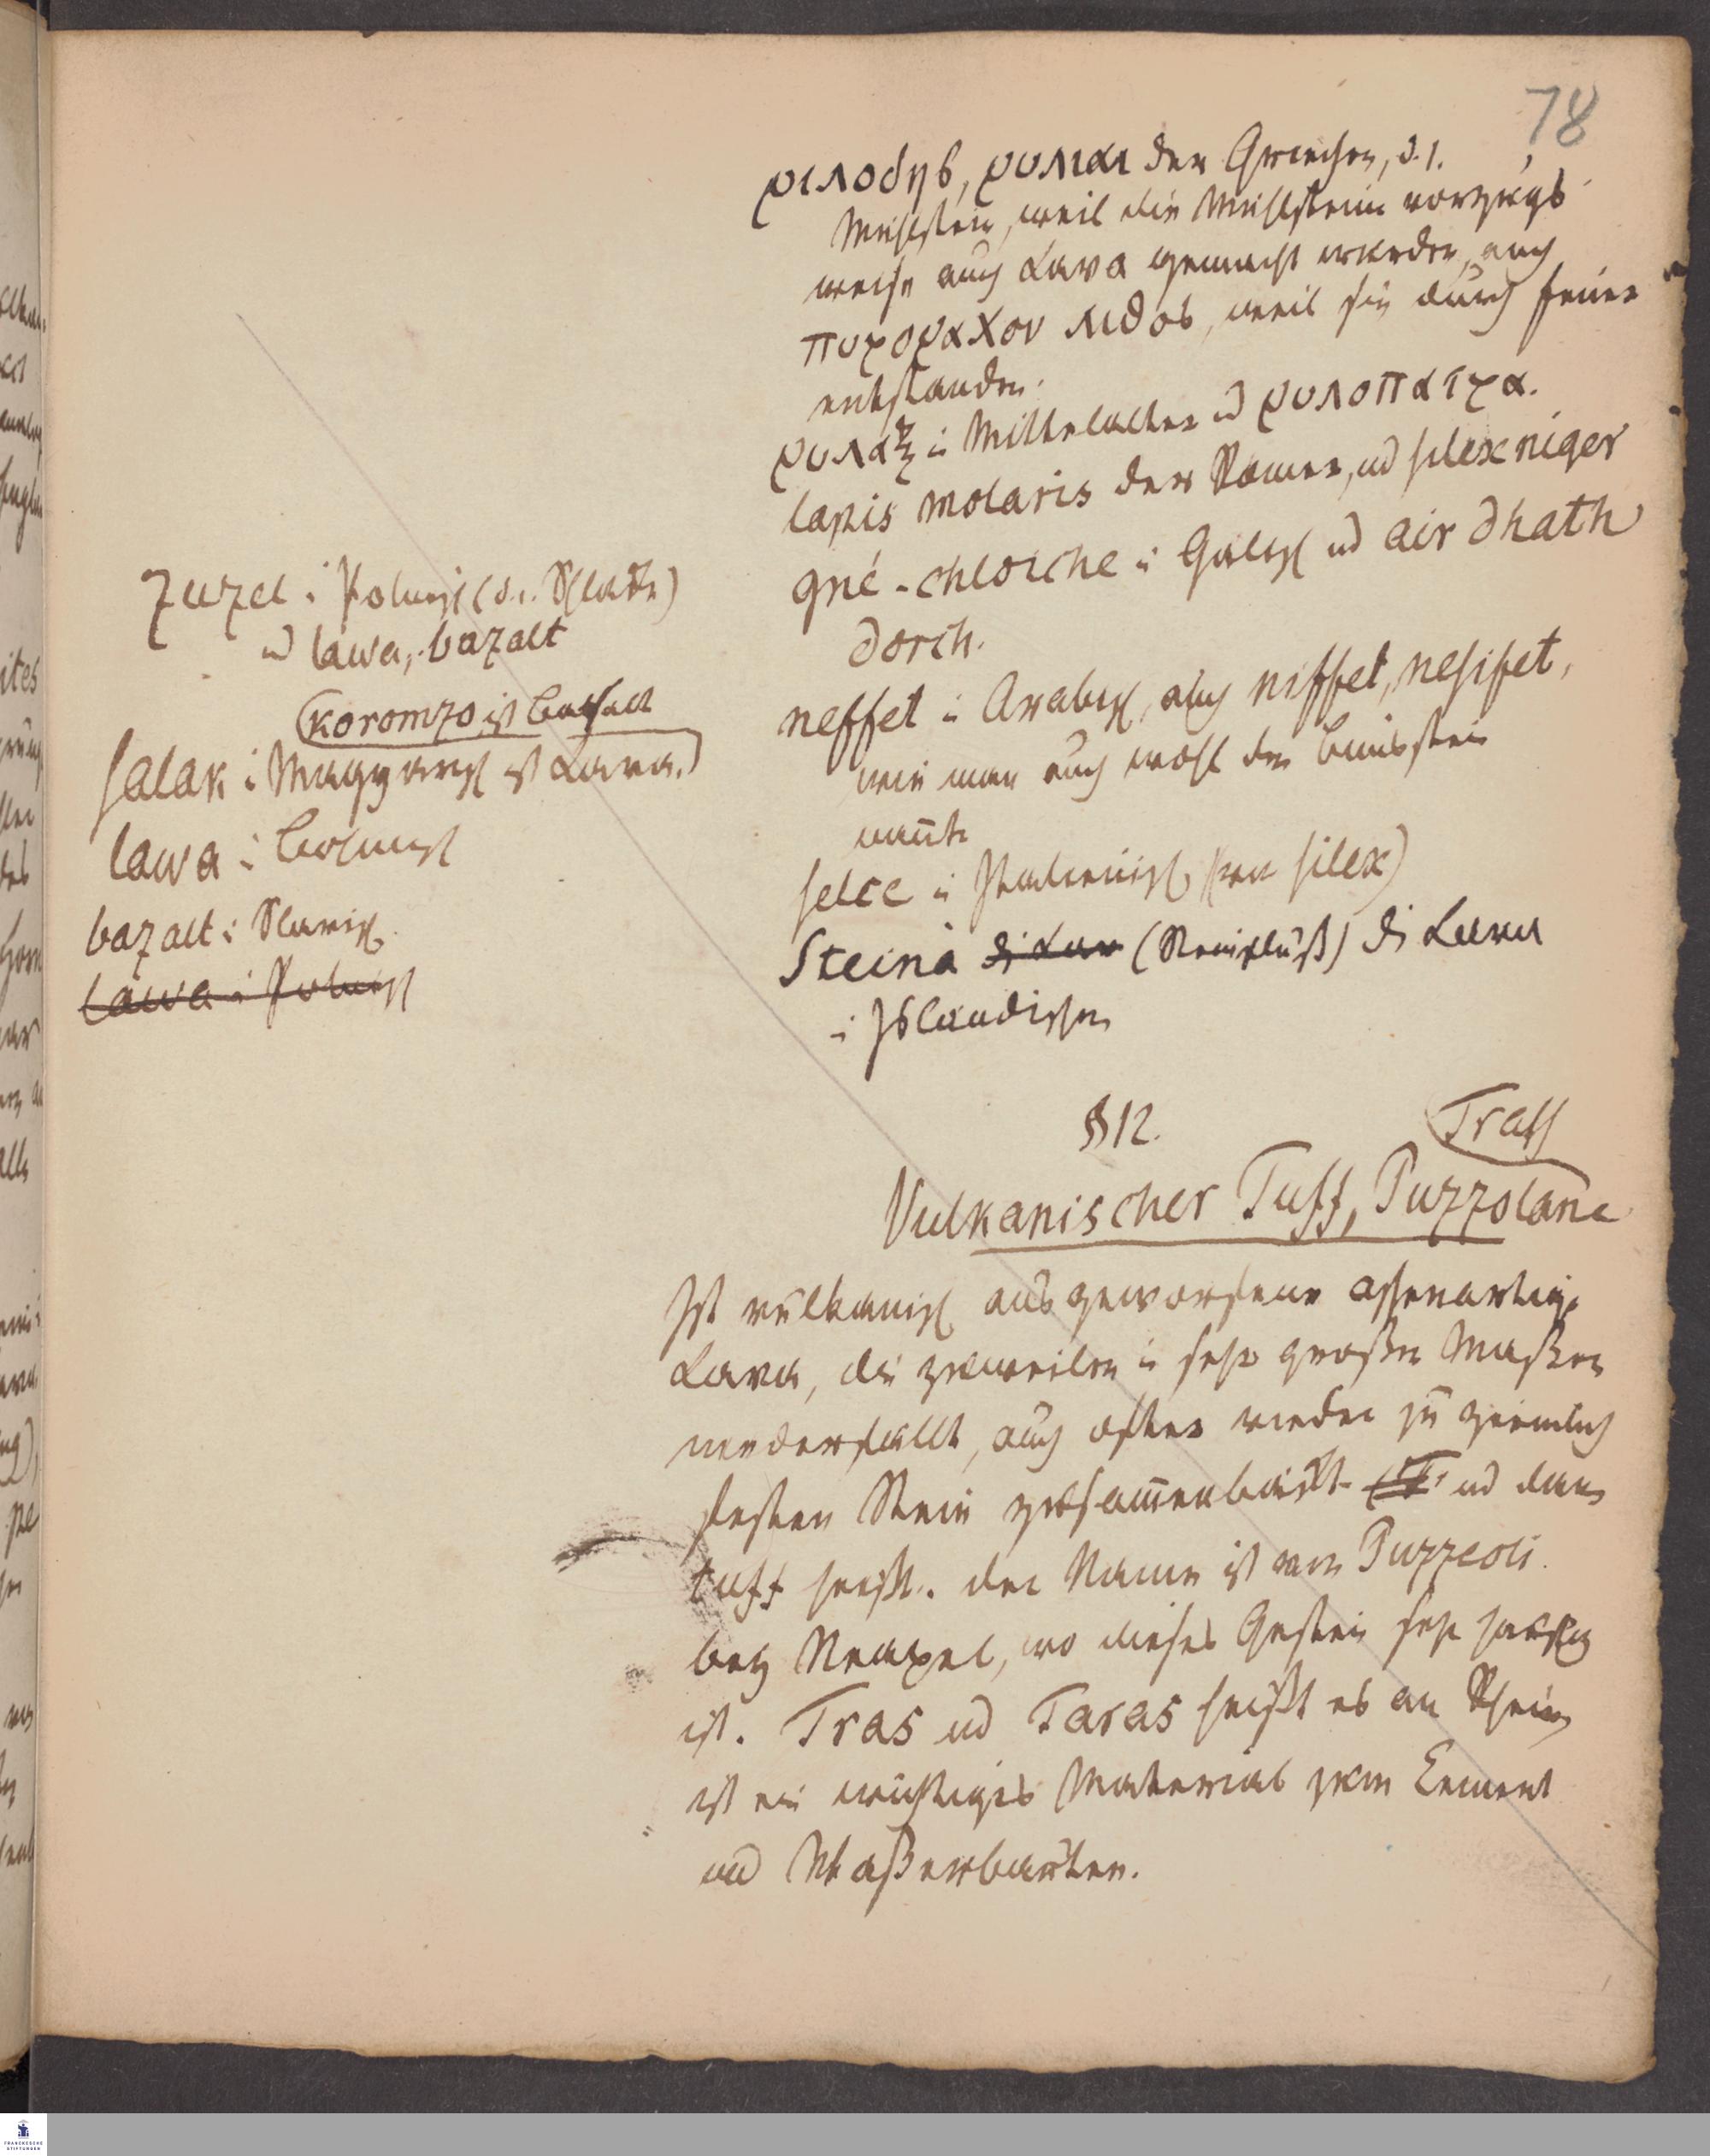 78
μιλοδης, μυλιαι der Griechen, d. i.
Muhlstein, weil die Muhlsteine vorzugs
weise aus Lava gemacht wurden, auch
πυρομαχον λιθος, weil sie durch feuer
entstanden.
μυλαξ i Mittelalter ud μυλοπατρα.
lapis molaris der Römer, ud silex niger
gné-chloiche i Galisch ud air dhath
dorch.
neffet i Arabisch, auch niffet, nesifet,
wie man auch wohl den Bimsstein
nannte
selce i Italienisch (von silex)
Steina di Lav (Steinfluß) di Lava
i Islandischen
zuzel i Polnisch (d. i. Schlacke)
ud lawa, bazalt
(koromzo ist Basalt
salak i Magyarisch ist Lava.)
lawa i Bohmisch
bazalt i Slavisch
lawa i Polnisch
§ 12.
Trass
Vulkanischer Tuff, Puzzolane
Ist vulkanisch ausgeworfene aschenartige
Lava, die zuweilen i sehr großen Maßen
niederfallt, auch ofter wieder zu ziemlich
festen Stein zusam̄enbackt ud dan
tuff heißt. der Name ist von Puzzeoli
bey Neapel, wo dieses Gestein sehr haufig
ist. Tras ud Taras heißt es am Rhein,
ist ein wichtiges Material zum Cement
ud Waßerbauten.
FRANCKESCHE
STIFTUNGEN